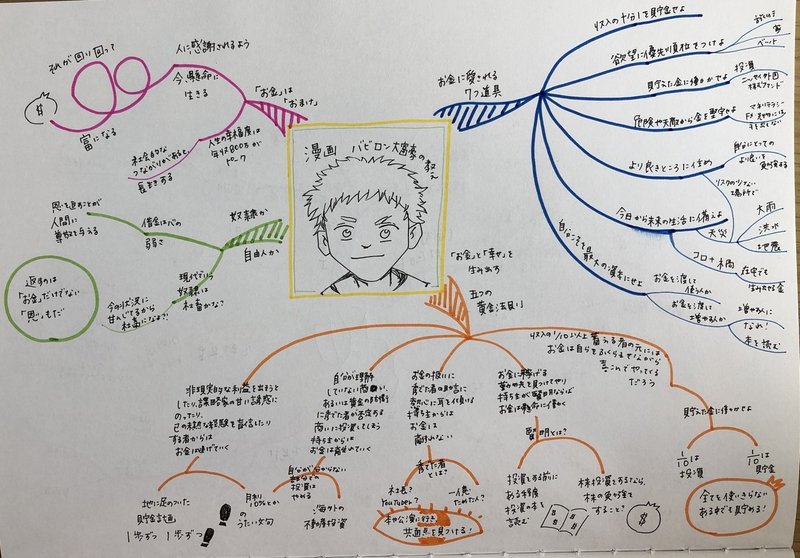 漫画 バビロン大富豪の教え
お金に愛される
7つ道具
収入の十分の1を貯金せよ
欲望に優先順位をつけよ
家
ペット
貯えた金に働かせよ
投資
危険や天敵から金を堅守せよ
より良きところに住め
自分にとっての
リスクの少ない
今日から未来の生活に備えよ
天災
大雨
洪水
地震
コロナ禍
在宅でも
生み出せる金
自分こそを最大の資本にせよ
お金を渡して
使う人か
お金を渡して
増やす人か
増やす人に
なれ!
本を読む
「お金」と「幸せ」を
生み出す
五つの
黄金法則
収入の1/10以上蓄える者の元には
お金は自らをふくらませながら
喜こんでやってくる
だろう
貯えた金に働かせよ
1/10は
投資
1/10は
貯金
全てを使いきらない
ある中でも貯める!
お金に稼げる
お金は懸命に働く
賢明とは?
投資をする前に
ある程度
投資の本を
読む
株投資をするなら
すること?
お金の扱いに
長けた者の助言に
熱心に耳を傾ける
持ち主からは
お金は
離れない
長けた者
とは?
社長?
YouTuber?
一億
ためた人?
本や公演に行き
共通点を見つける!
自分が理解
していない商い、
あるいは黄金の防衛に
長けた者が否定する
商いに投資してしまう
持ち主からは
お金は離れていく
自分が分からない
部分での
投資は
やめる
海外の
不動産投資
非現実的な利益を出そうと
したり、謀略家の甘い誘惑に
のったり、
己の未熟な経験を盲信したり
する者からは
お金は逃げていく
地に足のついた
貯金計画
1歩ずつ 1歩ずつ
月利
100%とか
のうたい文句
奴隷か
自由人か
借金は心の
弱さ
恩を返すことが
人間に
尊敬を与える
現代でいう
奴隷は
社畜かな?
今の状況に
甘んじてるから
社畜になるよ?
返すのは
「お金」だけでない
「恩」もだ
「お金」は
「おまけ」
今、懸命に
生きる
人に感謝されるよう
それが回り回って
富になる
人生の幸福度は
年収800万が
ピーク
社会的な
つながりがあると、
長生きする